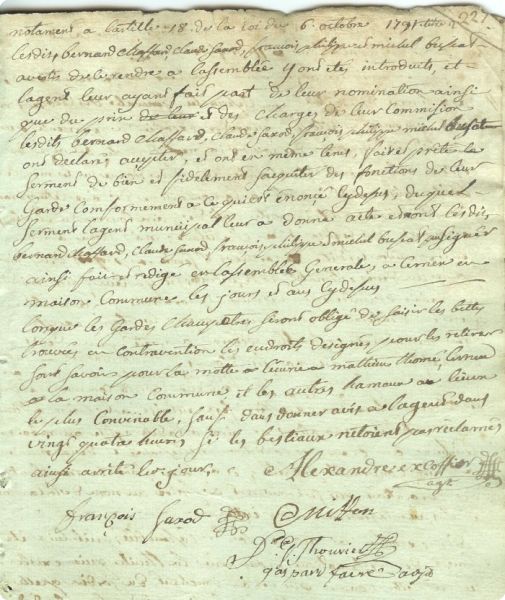 notament a lartille 18 de la loi du 6 octobre 1791
227
lesdits bernard Chassard Claude Sarod, francois philippe et michel busat
de se rendre a lassemblée y ont ete introduits, et
lagent leur ayant fait part de leur nomination ainsi
que du prix de leur et des charges de leur Commision
lesdits bernard Chassard, Claude Sarod, francois philippe michel busat
ont declaré accepter, et ont en même tems, fait et prété le
serment de bien et fidelement saquiter des fonctions de leur
Garde Comformement a ce qui est enoncé cydesus, duquel
serment lagent municipal leur a donné acte et ont lesdits
bernard Chassard, Claude Sarod francois, philippe et michel busat
ainsi fait et redigé en lassemblée Generale, a cernex en
maison Commune les jours et ans cydesus
lorsque les Gardes Champetres seront obligé de saisir les bettes
trouvees en Contravention les endroits designes pour les retirer
sont savoir pour la motte a
a la maison Commune et les autres hamaux au lieux
le plus Convinable, sauf dans donner avis a lagent dans
vingt quatre heures si les bestiaux netoient pas reclamés
ainsi arreté les jours,
Alexandre excoffier
agt
françois Sarod
Thouvier
gaspard favre